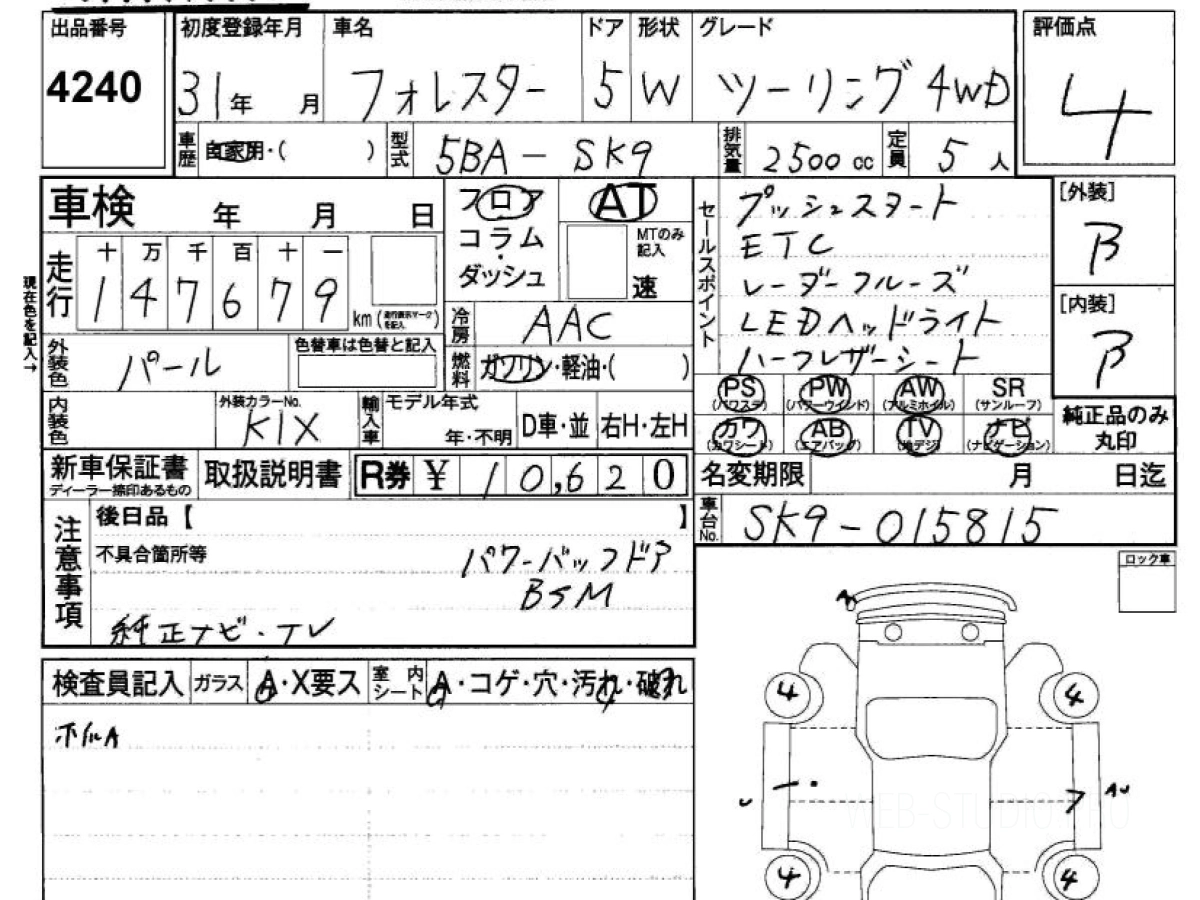 出品番号 初度登録年月 車名 ドア 形状 グレード 評価点
4240 31年 月 フォレスター 5 W ツーリング 4WD 4
車歴 自家用・( ) 型式 5BA - SK9 排気量 2500 cc 定員 5 人
車検 年 月 日 フロア AT セールスポイント プッシュスタート [外装]
コラム MTのみ記入 ETC B
走行 十 万 千 百 十 一 ・ダッシュ 速 レーダークルーズ
147679 km (走行表示マークを記入) 冷房 AAC LEDヘッドライト [内装]
現在色を記入→
外装色 パール 色替車は色替と記入 燃料 ガソリン・軽油・( ) ハーフレザーシート B
PS (パワステ) PW (パワーウインド) AW (アルミホイル) SR (サンルーフ)
内装色 外装カラーNo. K1X 輸入車 モデル年式 年・不明 D車・並 右H・左H カワ (カワシート) AB (エアバッグ) TV (地デジ) ナビ (ナビゲーション) 純正品のみ丸印
新車保証書 ディーラー捺印あるもの 取扱説明書 R券 ¥ 10,620 名変期限 月 日迄
注意事項 後日品【 】 車台No. SK9-015815
不具合箇所等 パワーバックドア ロック車
BSM
純正ナビ・TV
検査員記入 ガラス A・X要ス 室内シート A・コゲ・穴・汚れ・破れ
ホイルA
A
4 4
U AU
WEB-STUDIO.PRO
4 4